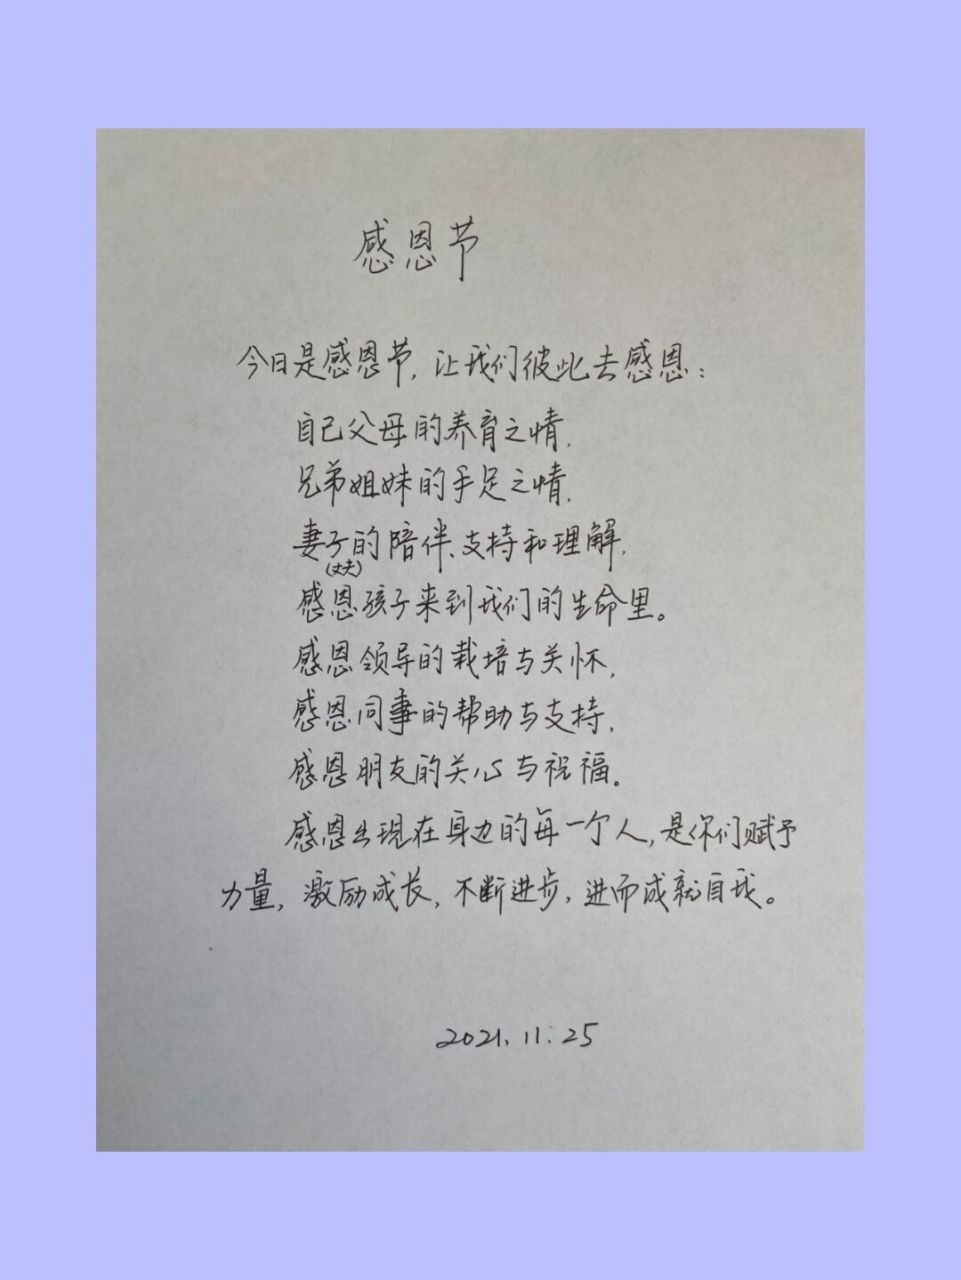 感恩节
今日是感恩节，让我们彼此去感恩：
自己父母的养育之情，
兄弟姐妹的手足之情，
妻子的陪伴、支持和理解，
(丈夫)
感恩孩子来到我们的生命里。
感恩领导的栽培与关怀，
感恩同事的帮助与支持，
感恩朋友的关心与祝福。
感恩出现在身边的每一个人，是你们赋予
力量，激励成长，不断进步，进而成就自我。
2021.11.25